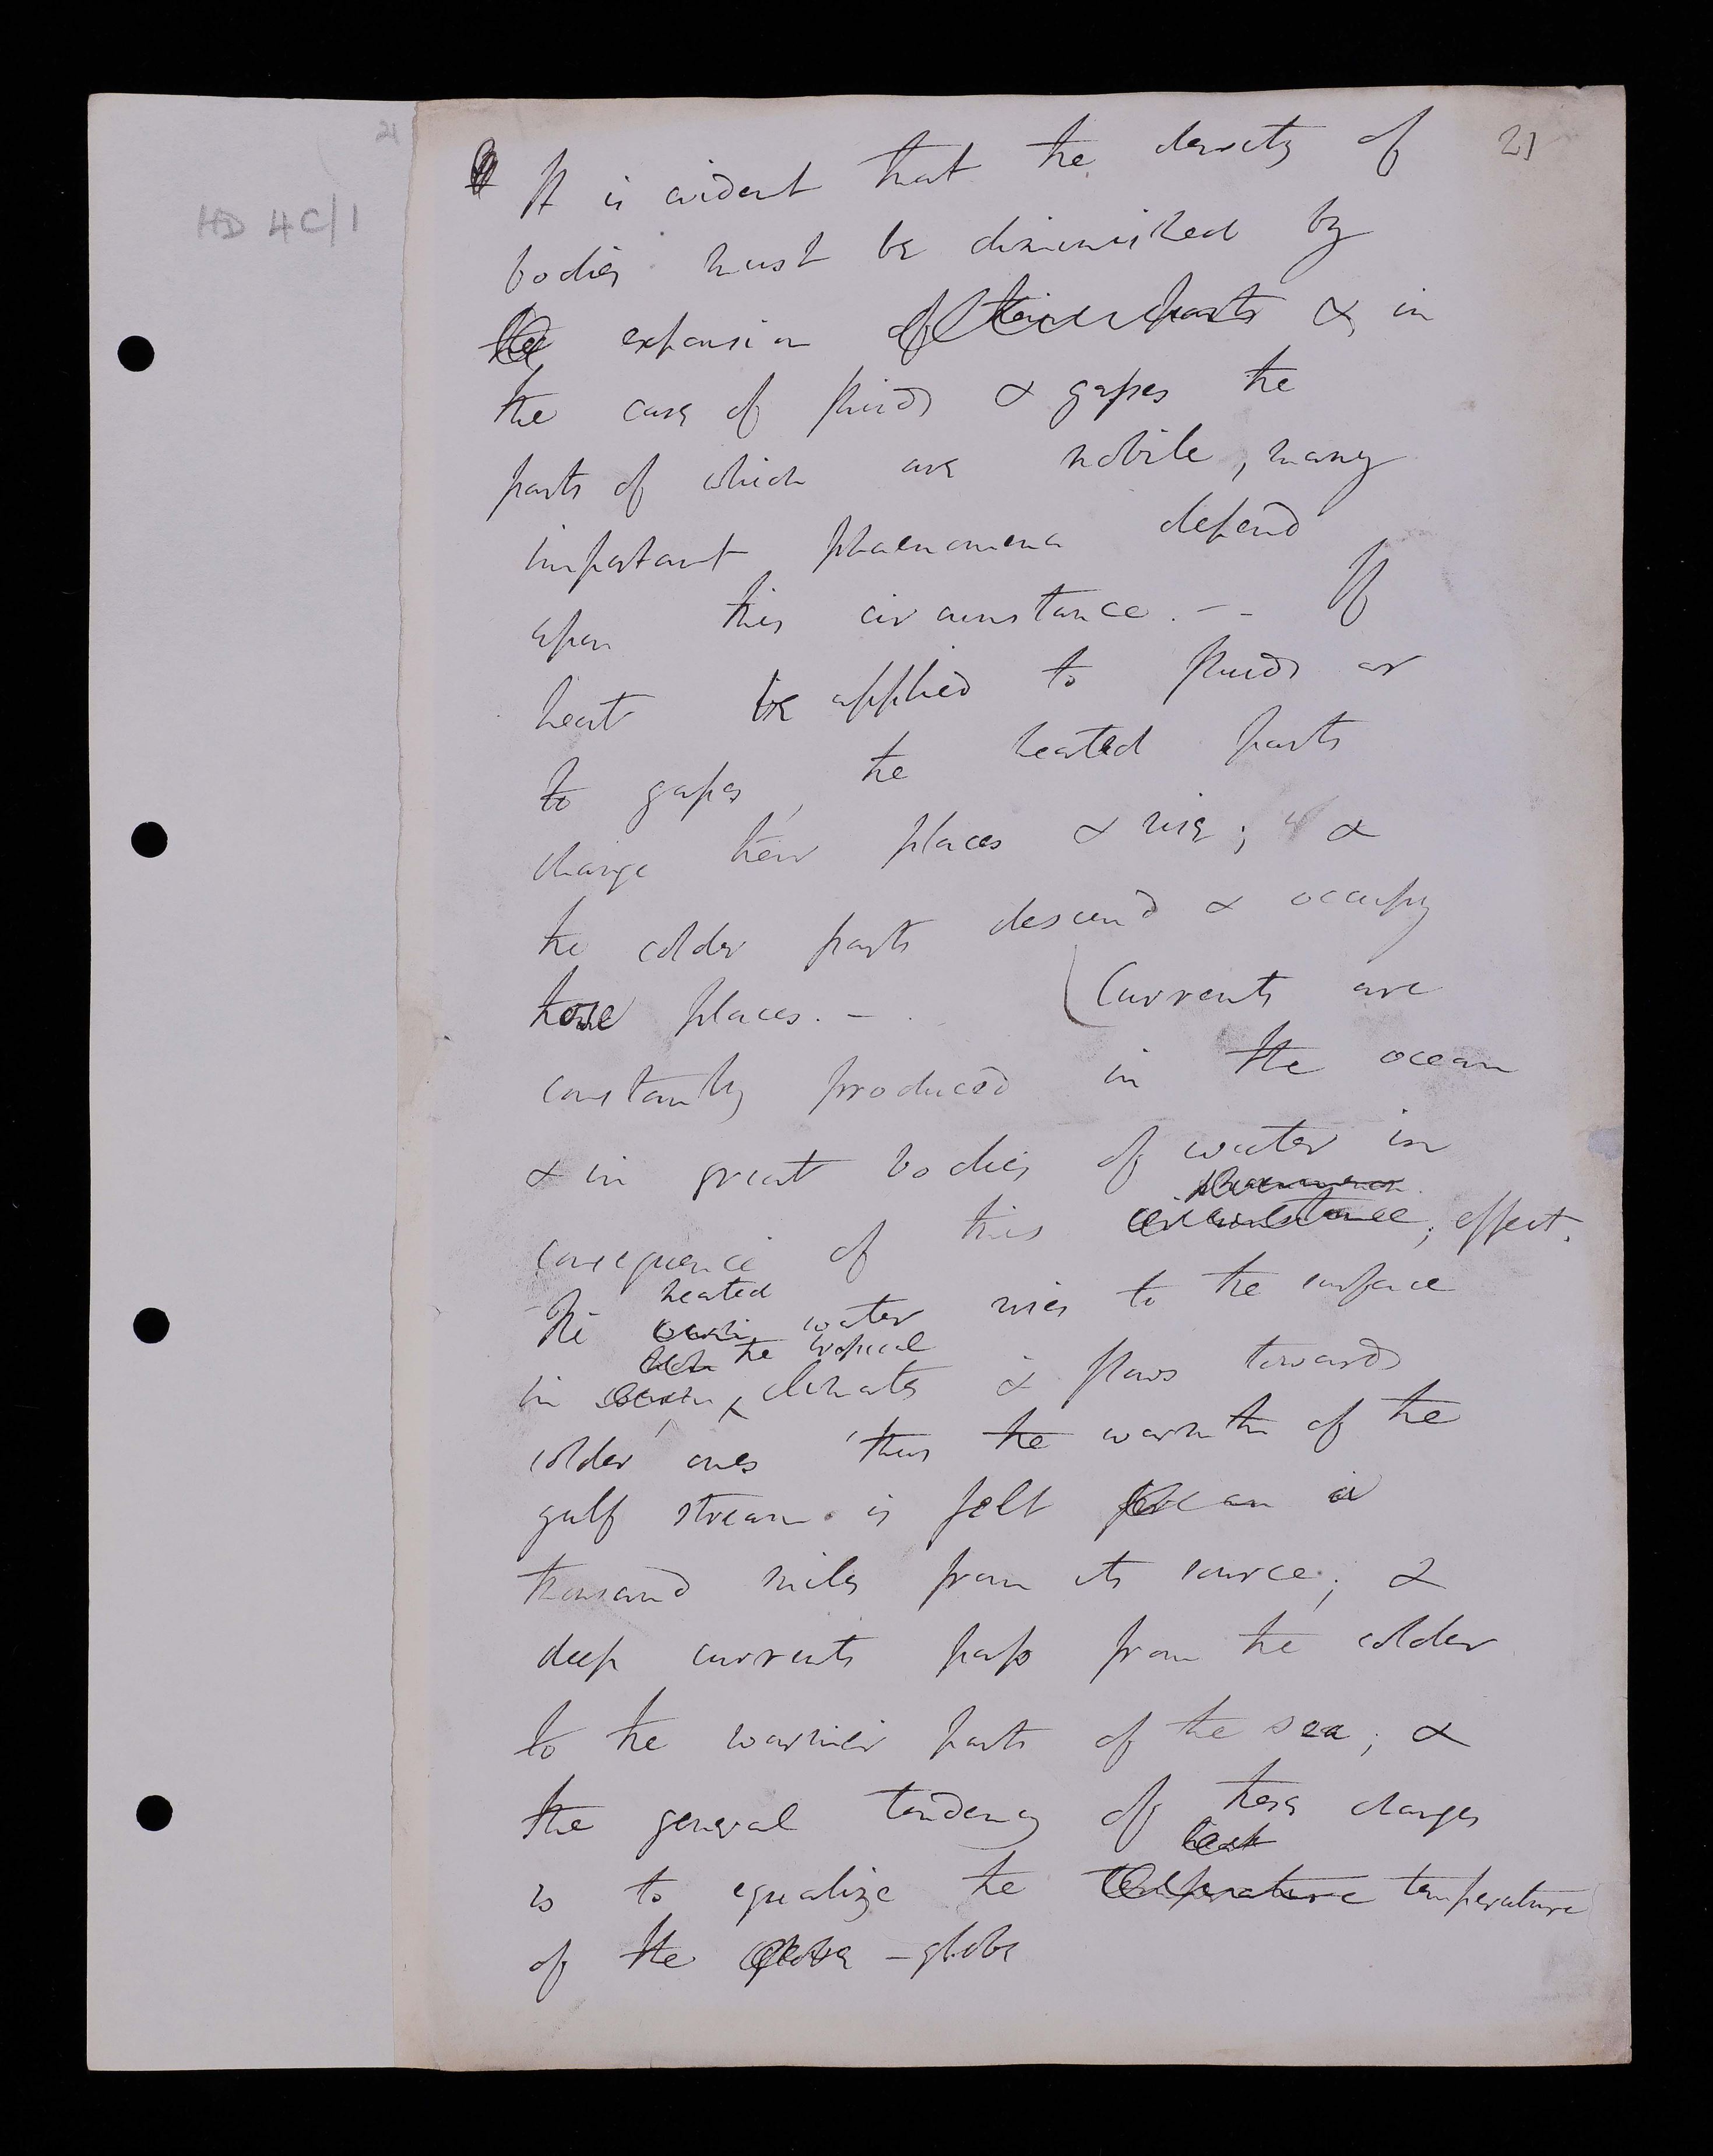 21
21
HD 4C/1
It is evident that the density of
bodies must be diminished by
the expansion of their parts & in
the case of fluids & gasses the
parts of which are mobile, many
important phaenomena depend
upon this circumstance. -- If
heat be applied to fluids or
to gases, the heated parts
change their places & rise; &
the colder parts descend & occupy
those places. - (Currents are
constantly produced in the ocean
& in great bodies of water in
phenomenon
consequence of this circumstance; effect.
heated
The warm water rises to the surface
the tropical
in climates & flows towards
colder ones thus the warmth of the
gulf stream is felt a
thousand miles from its source; &
deep currents pass from the colder
to the warmer parts of the sea; &
the general tendency of these changes
heat
is to equalize the temperature temperature
of the Globe - globe